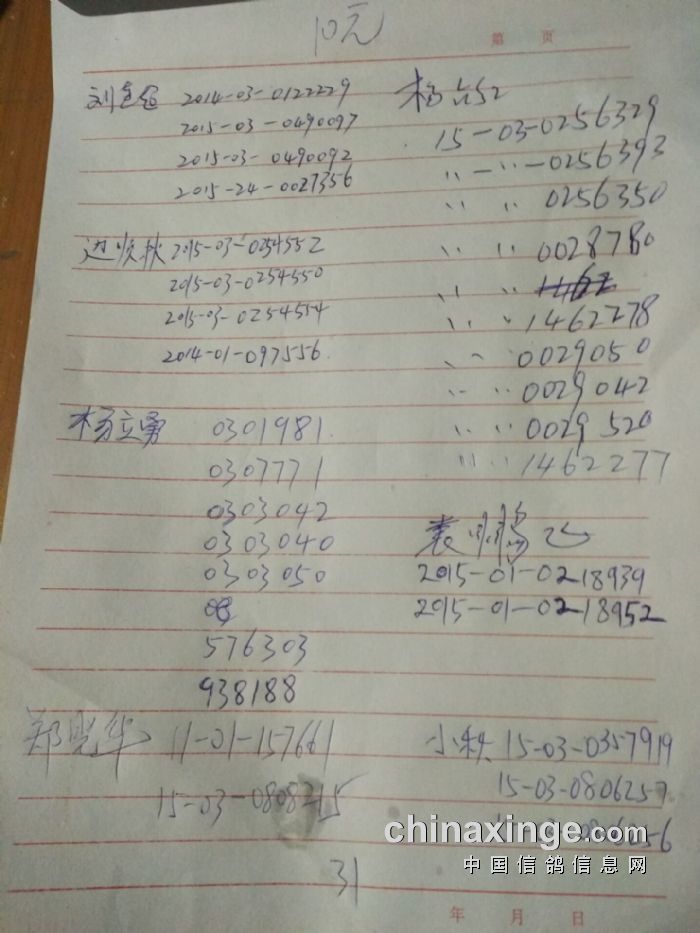 10元
第 页
刘 2014-03-0122229
2015-03-0490097
2015-03-0490092
2015-24-0027356
边顺秋 2015-03-0254552
2015-03-0254550
2015-03-0254554
2014-01-097556
杨立勇 0301981
0307771
0303042
0303040
0303050
576303
938188
郑晓华 11-01-157661
15-03-0808215
杨
15-03-0256329
〃-〃-0256393
〃 〃 0256350
〃 〃 0028780
〃 〃 1462
〃 〃 1462278
〃 〃 0029050
〃 〃 0029042
〃 〃 0029520
〃 〃 1462277
袁
2015-01-0218939
2015-01-0218952
小秋 15-03-0357919
15-03-0806257
15-03-0806256
31
chinaxinge.com
中国信鸽信息网
年 月 日